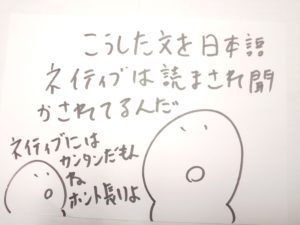 こうした文を日本語
ネイティブは読まされ聞
かされてるんだ
ネイティブには
カンタンだもん
ね
ホント長りよ